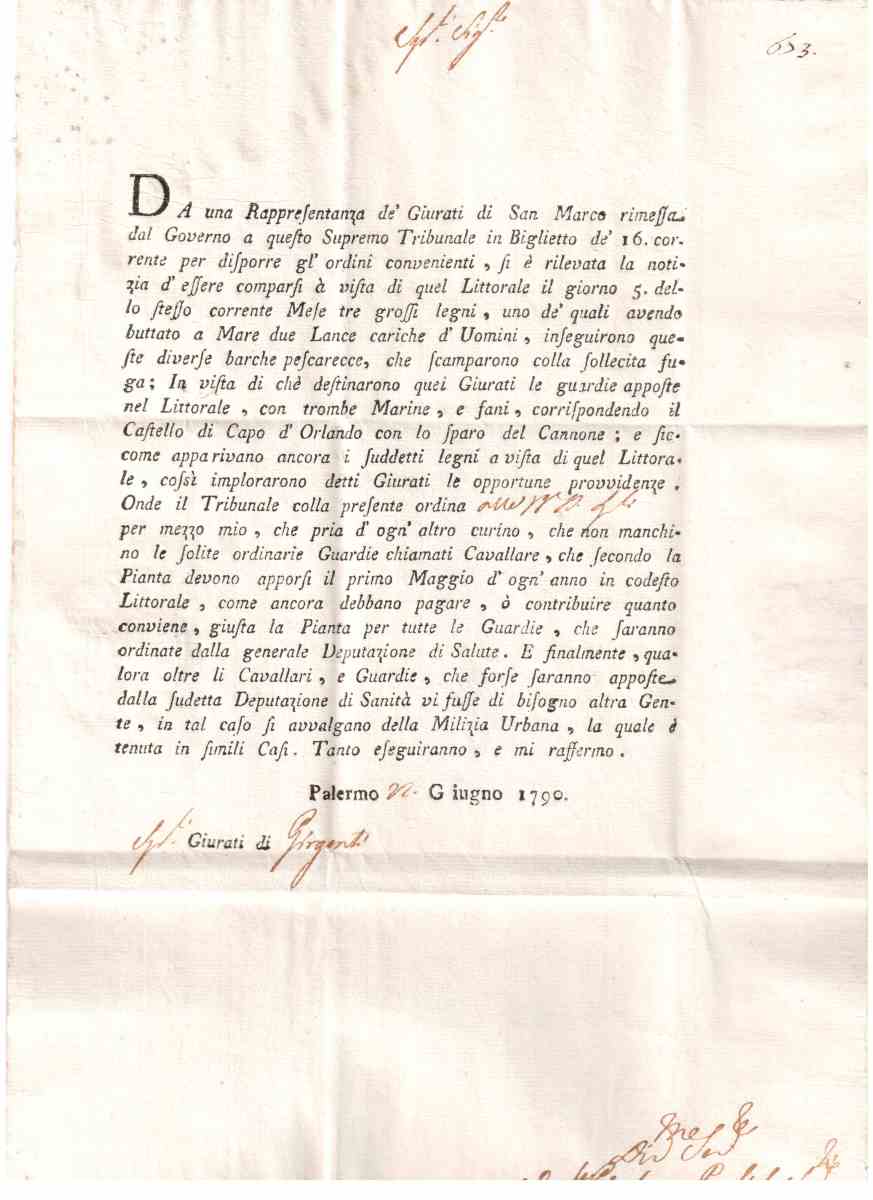 653.
DA una Rappreſentanza de' Giurati di San Marco rimeſſa
dal Governo a queſto Supremo Tribunale in Biglietto de' 16. cor-
rente per diſporre gl' ordini convenienti, ſi è rilevata la noti-
zia d' eſſere comparſi à viſta di quel Littorale il giorno 5. del-
lo ſteſſo corrente Meſe tre groſſi legni, uno de' quali avendo
buttato a Mare due Lance cariche d' Uomini, inſeguirono que-
ſte diverſe barche peſcarecce, che ſcamparono colla ſollecita fu-
ga; In viſta di chè deſtinarono quei Giurati le guardie appoſte
nel Littorale, con trombe Marine, e fani, corriſpondendo il
Caſtello di Capo d' Orlando con lo ſparo del Cannone; e ſic-
come apparivano ancora i ſuddetti legni a viſta di quel Littora-
le, coſsì implorarono detti Giurati le opportune provvidenze.
Onde il Tribunale colla preſente ordina
per mezzo mio, che pria d' ogn' altro curino, che non manchi-
no le ſolite ordinarie Guardie chiamati Cavallare, che ſecondo la
Pianta devono apporſi il primo Maggio d' ogn' anno in codeſto
Littorale, come ancora debbano pagare, ò contribuire quanto
conviene, giuſta la Pianta per tutte le Guardie, che ſaranno
ordinate dalla generale Deputazione di Salute. E finalmente, qua-
lora oltre li Cavallari, e Guardie, che forſe ſaranno appoſte
dalla ſudetta Deputazione di Sanità vi fuſſe di biſogno altra Gen-
te, in tal caſo ſi avvalgano della Milizia Urbana, la quale è
tenuta in ſimili Caſi. Tanto eſeguiranno, e mi raffermo.
Palermo Giugno 1790.
Giurati di Girgenti